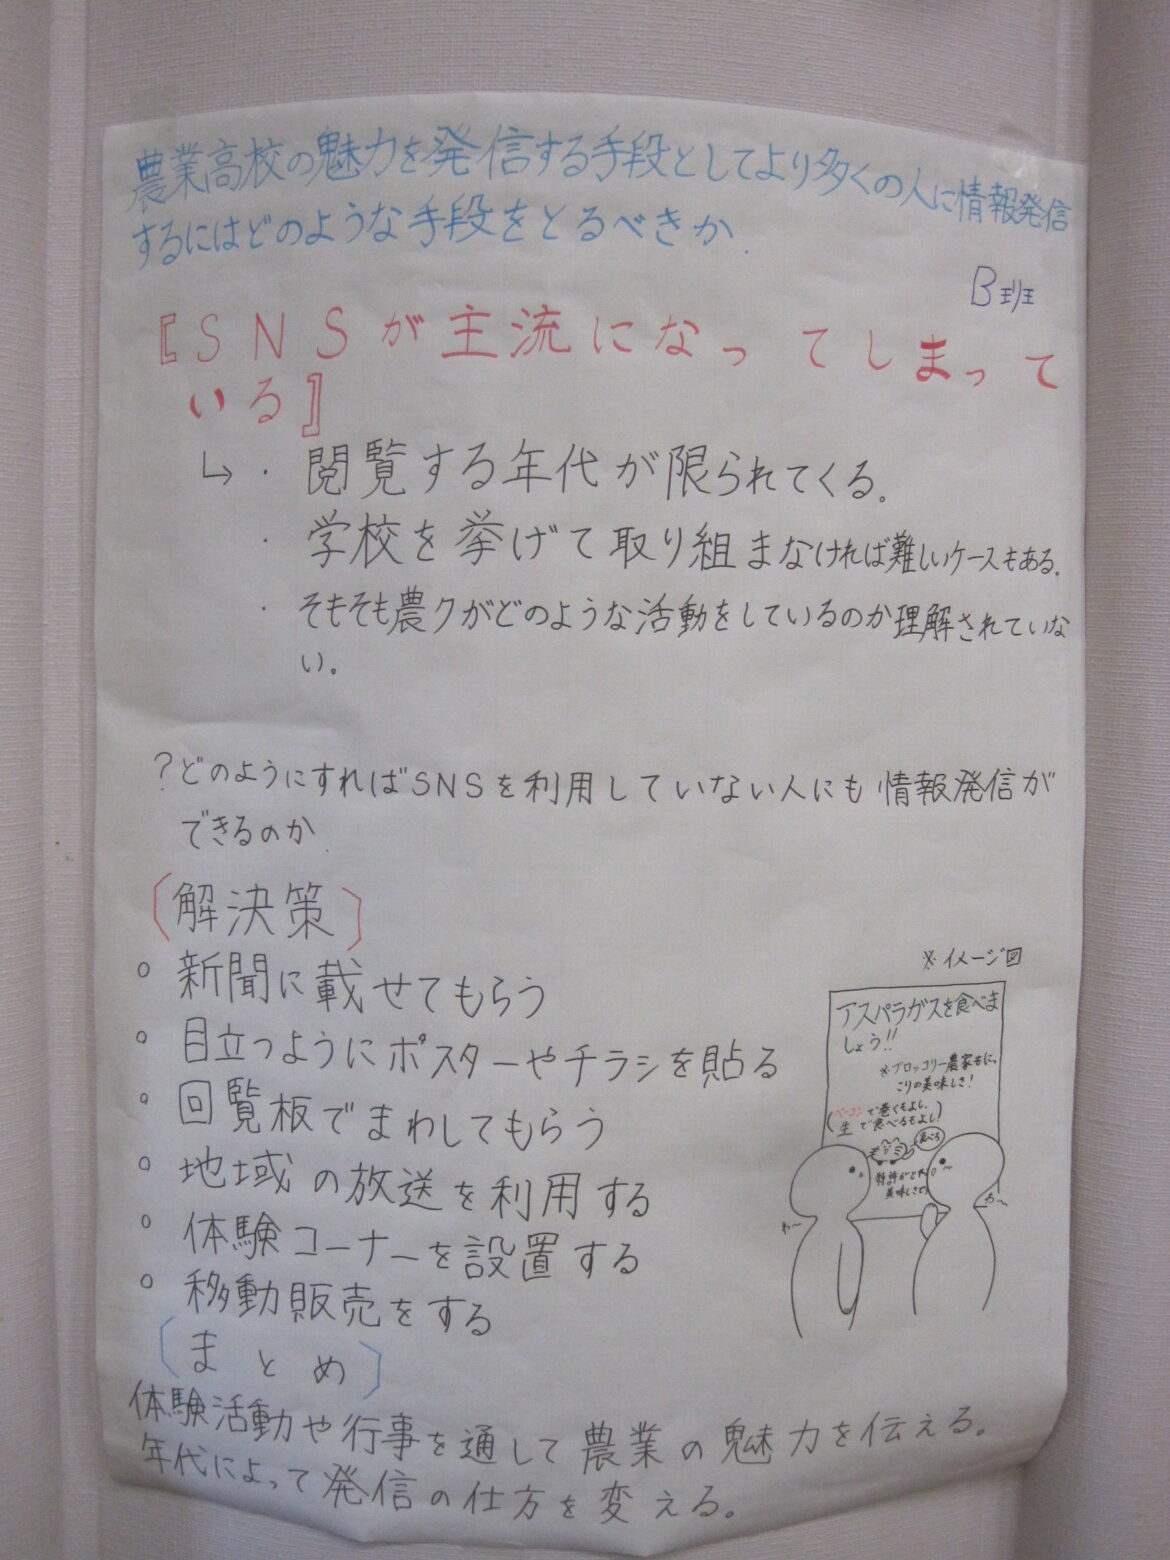 農業高校の魅力を発信する手段としてより多くの人に情報発信
するにはどのような手段をとるべきか.
B班
『SNSが主流になってしまって
いる』
↳・閲覧する年代が限られてくる。
・学校を挙げて取り組まなければ難しいケースもある.
・そもそも農クがどのような活動をしているのか理解されていな
い。
?どのようにすればSNSを利用していない人にも情報発信が
できるのか.
〔解決策〕
○新聞に載せてもらう
○目立つようにポスターやチラシを貼る
○回覧板でまわしてもらう
○地域の放送を利用する
○体験コーナーを設置する
○移動販売をする
※イメージ図
アスパラガスを食べま
しょう!!
※ブロッコリー農家もに、
こりの美味しさ!
(ベーコンで巻くもよし,
生で食べるもよし)
食べろ
特許がとれ
美味しさで
わ〜
わ〜
〔まとめ〕
体験活動や行事を通して農業の魅力を伝える。
年代によって発信の仕方を変える。